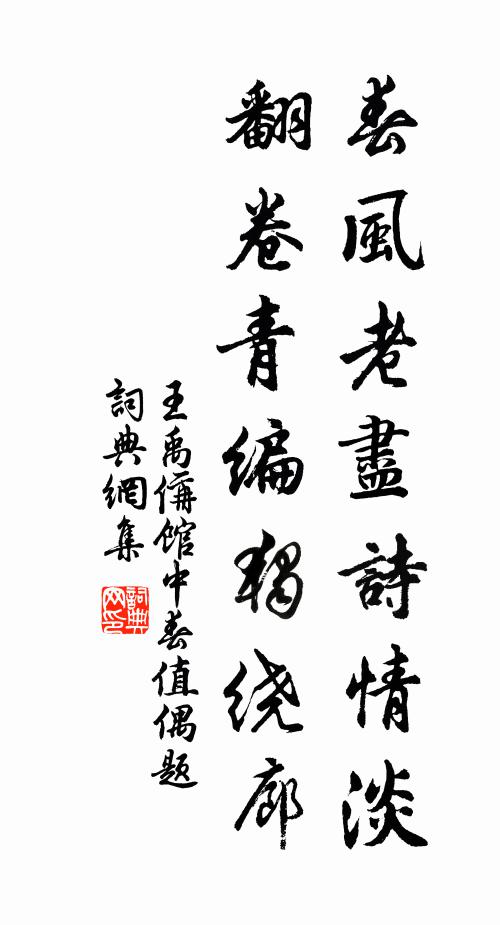 春風老盡詩情淡
翻卷青編獨绕廊
王禹偁館中春值偶题
詞典網集
詞典网印